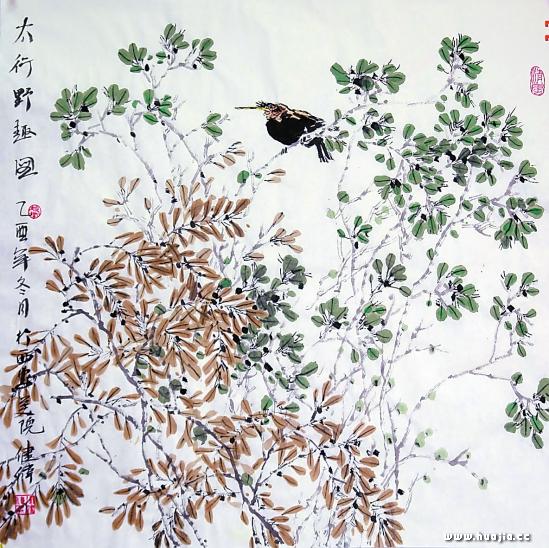 太行野趣图
乙酉年冬月於西安画院健伟
www.huajia.cc